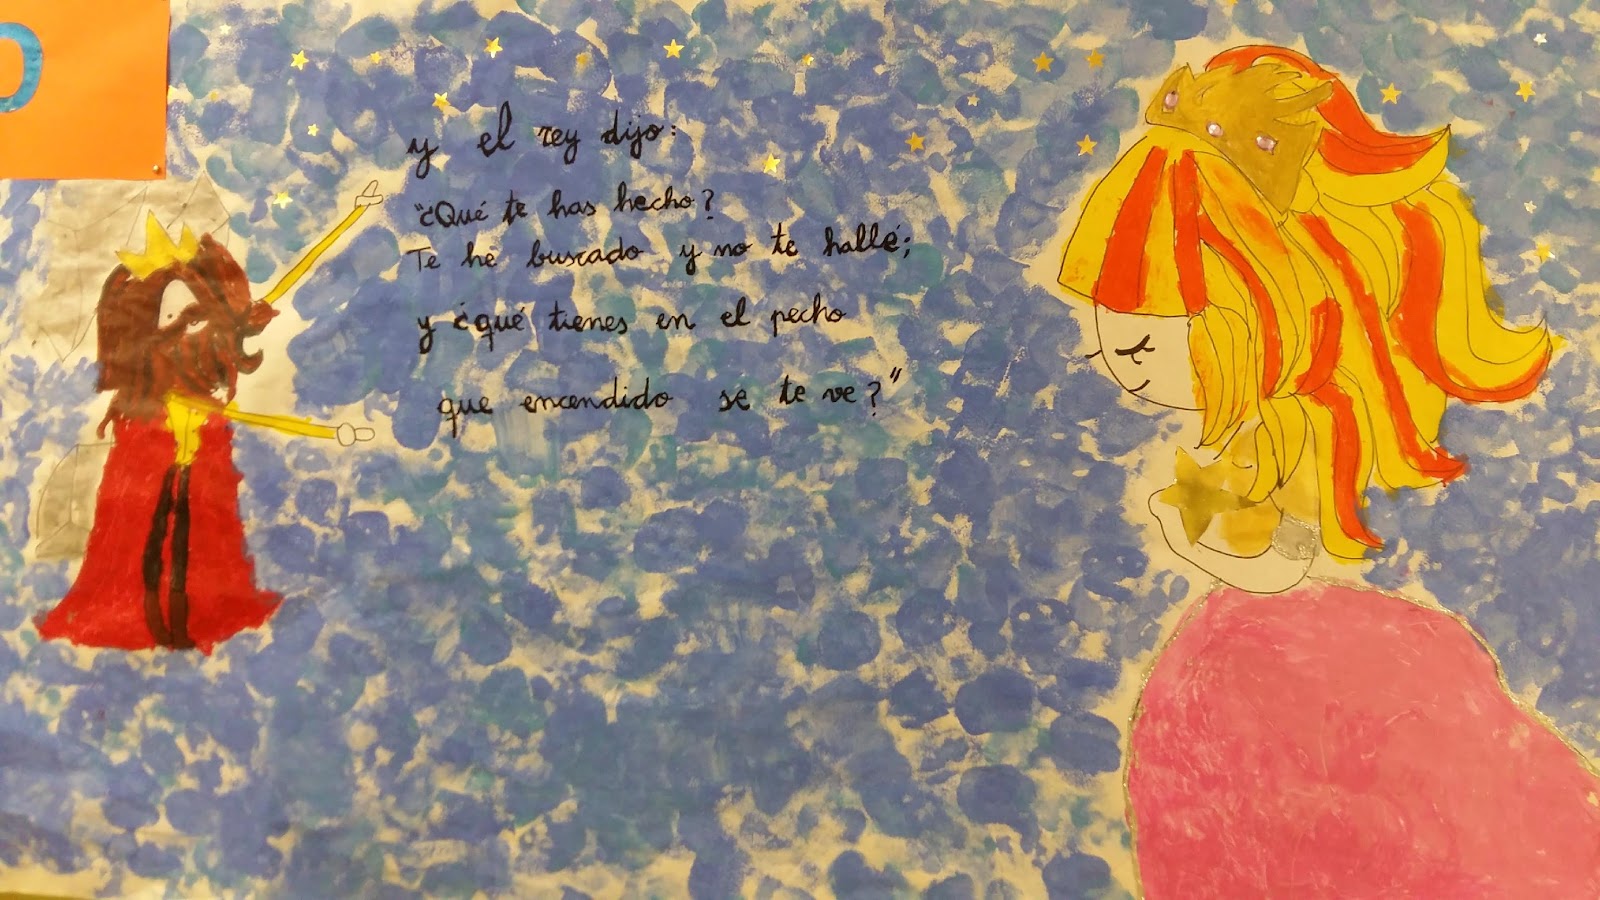 O
y el rey dijo:
"¿Qué te has hecho?
Te he buscado y no te hallé;
y ¿qué tienes en el pecho
que encendido se te ve?"